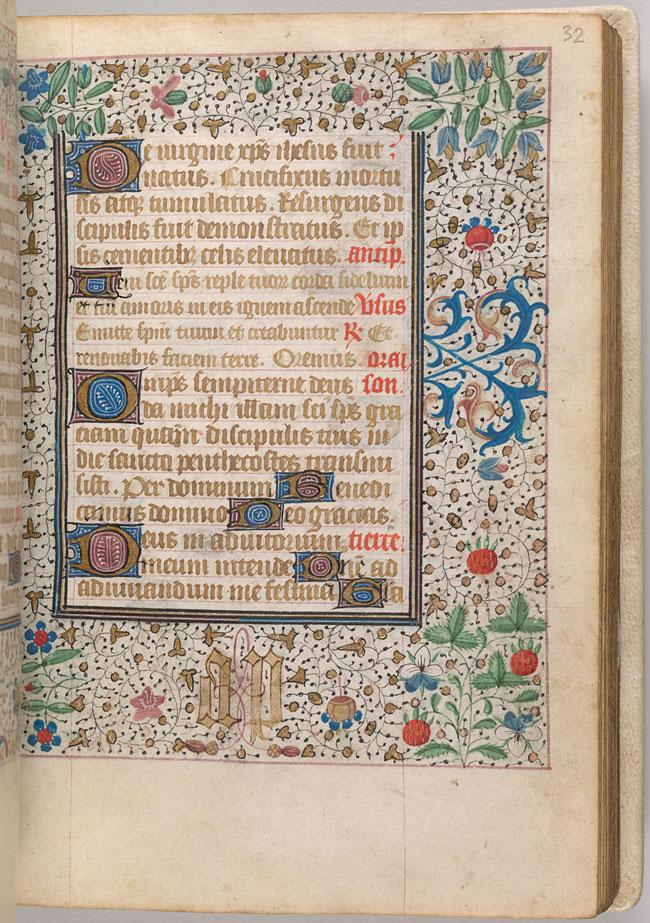 32
De virgine xp̄s ihesus fuit
natus. Crucifixus mortu
us atqꝫ tumulatus. Resurgens di
scipulis fuit demonstratus. Et ip
sis cernentibꝫ celis eleuatus. antip̄.
Ueni sc̄e sp̄s reple tuoꝝ corda fidelium
et tui amoris in eis ignem ascende v̄sus
Emitte sp̄m tuum et creabuntur R̄. Et
renouabis faciem terre. Oremus. orai
Omp̄s sempiterne deus son.
da michi illam sc̄i sp̄s gra
ciam quam discipulis tuis in
die sancto penthecostes transmi
sisti. Per dominum Benedi
camus domino Deo gracias.
Deus in adiutorium tierce.
meum intende Dn̄e ad
adiuuandum me festina Gla